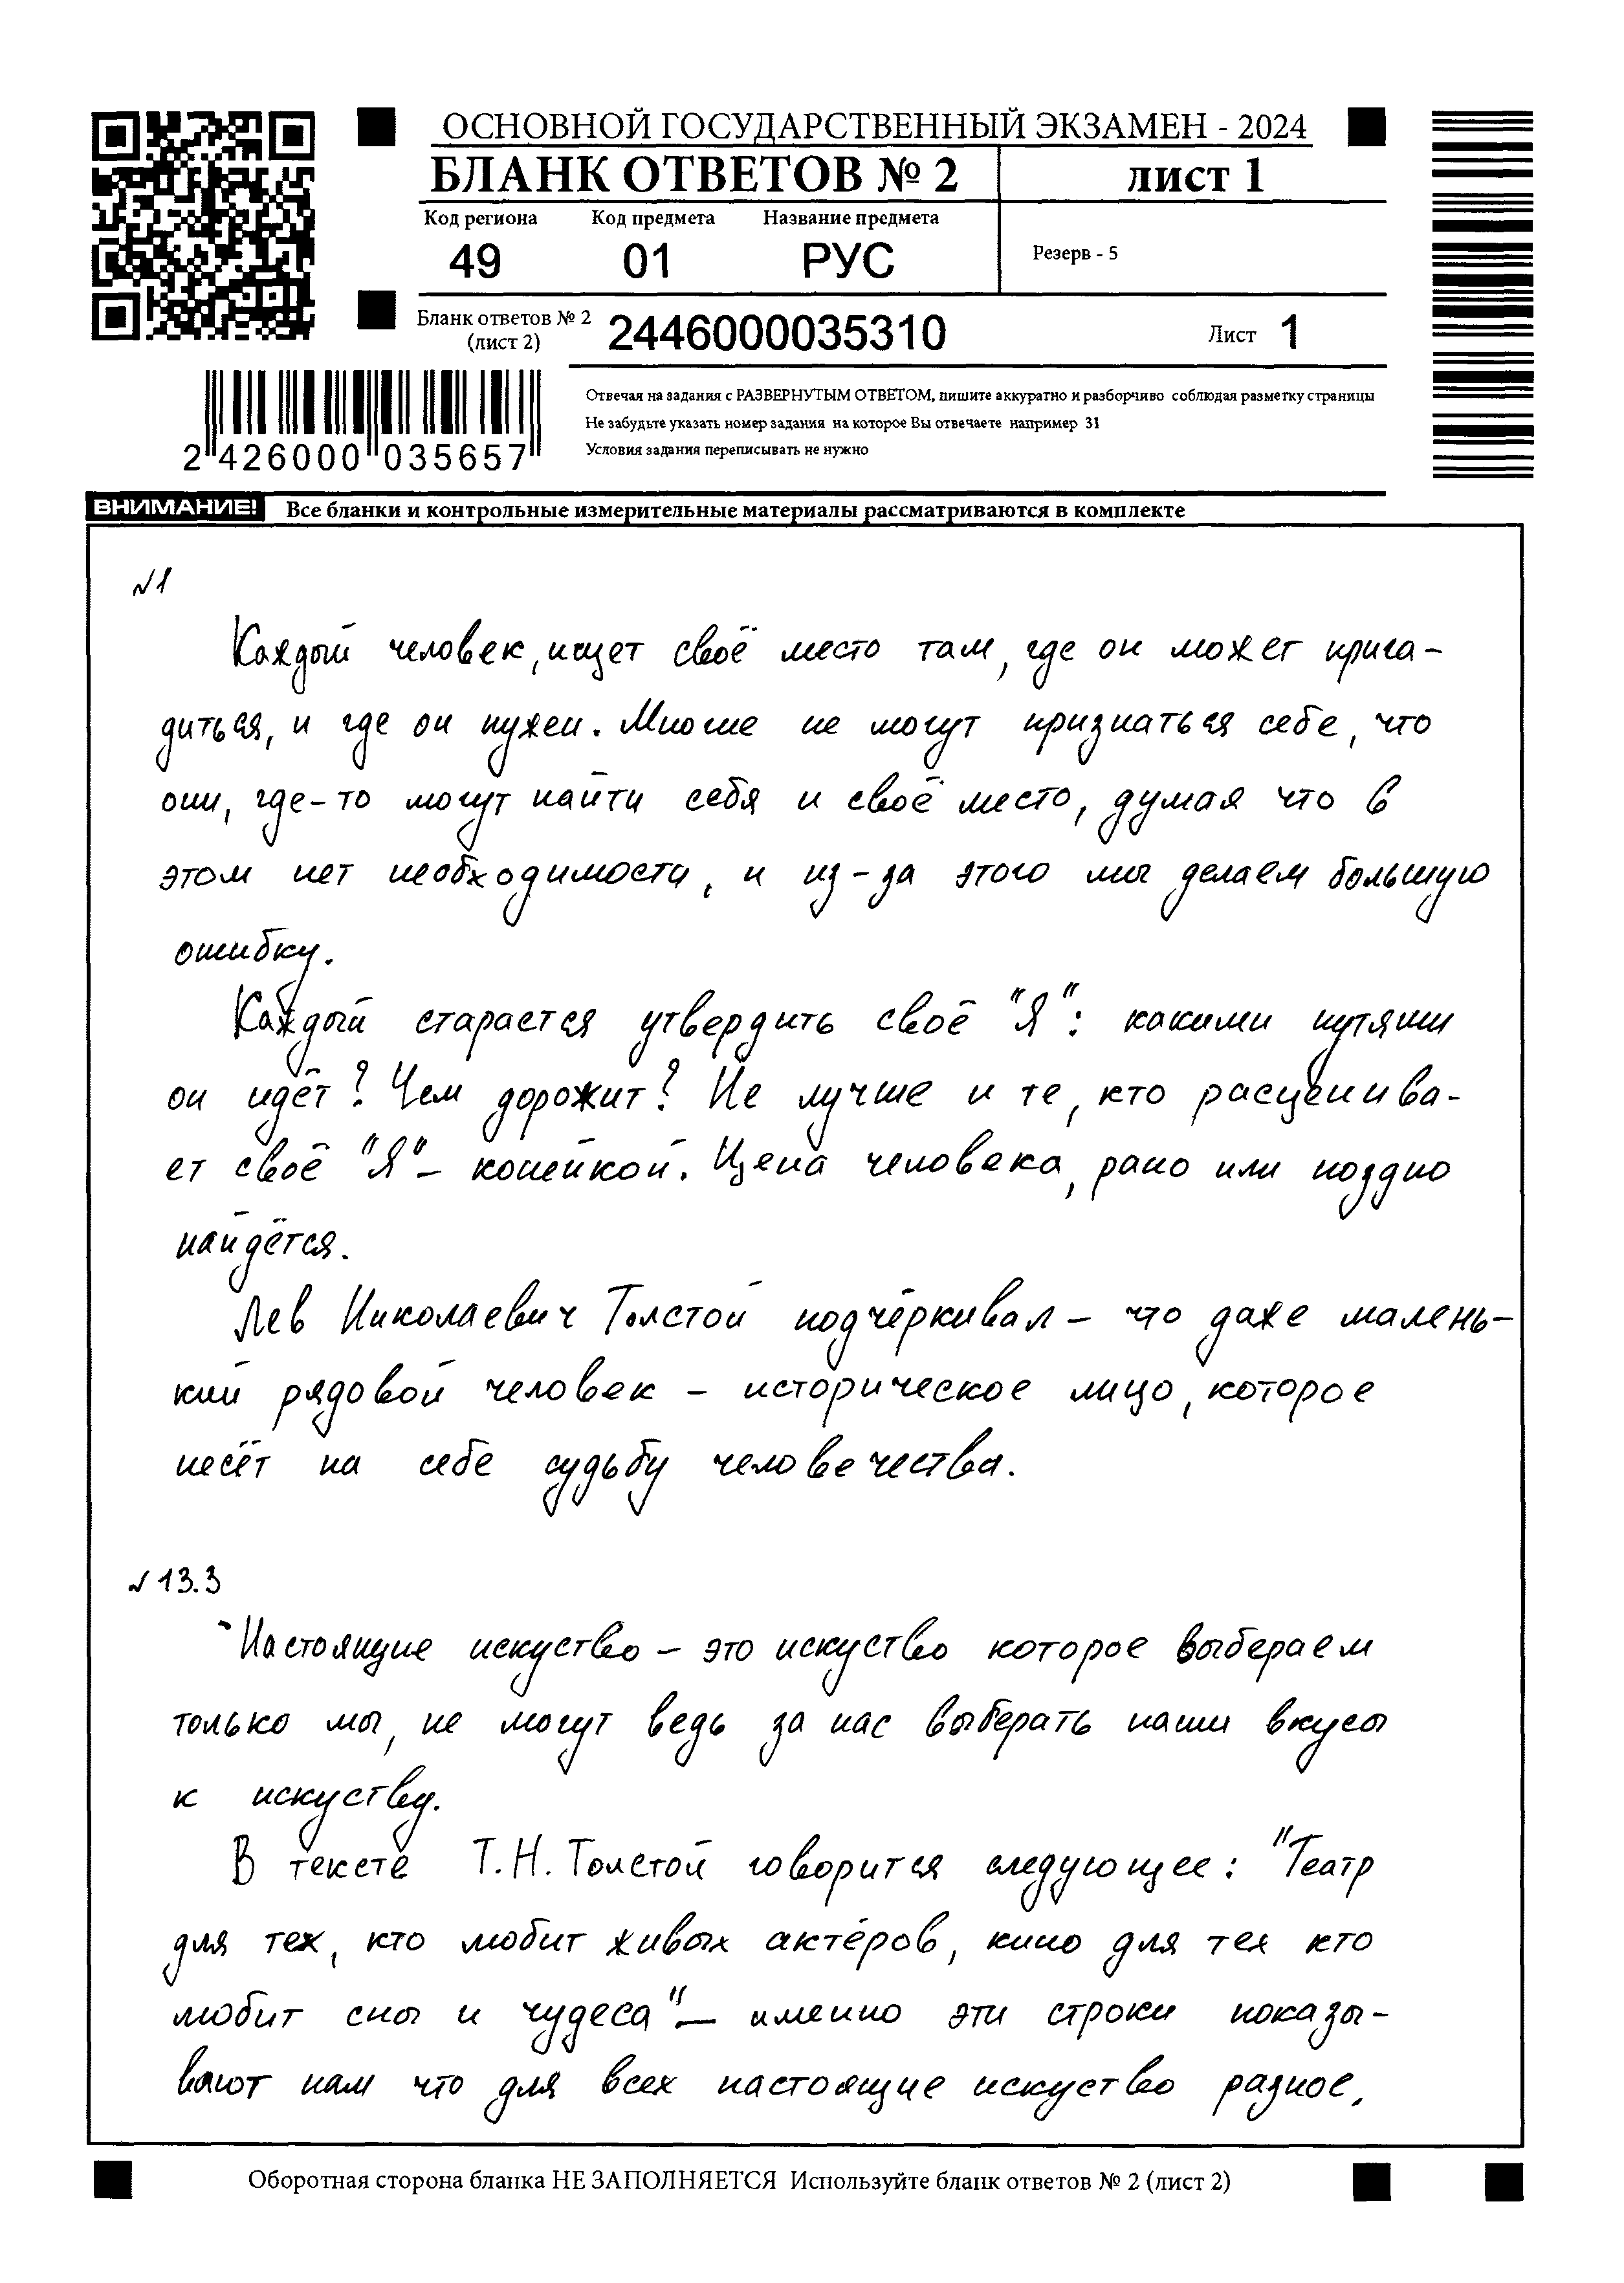 ОСНОВНОЙ ГОСУДАРСТВЕННЫЙ ЭКЗАМЕН - 2024
БЛАНК ОТВЕТОВ № 2
лист 1
Код региона Код предмета Название предмета
49 01 РУС
Резерв - 5
Бланк ответов № 2
(лист 2)
2446000035310
Лист 1
2 426000 035657
Отвечая на задания с РАЗВЕРНУТЫМ ОТВЕТОМ, пишите аккуратно и разборчиво соблюдая разметку страницы
Не забудьте указать номер задания на которое Вы отвечаете например 31
Условия задания переписывать не нужно
ВНИМАНИЕ! Все бланки и контрольные измерительные материалы рассматриваются в комплекте
№1
Каждый человек, ищет своё место там, где он может прига-
диться, и где он нужен. Многие не могут признаться себе, что
они, где-то могут найти себя и своё место, думая что в
этом нет необходимости, и из-за этого мы делаем большую
ошибку.
Каждый старается утвердить своё "Я": какими путями
он идёт? Чем дорожит? Не лучше и те, кто расценива-
ет своё "Я" - копейкой. Цена человека, рано или поздно
найдётся.
Лев Николаевич Толстой подчёркивал - что даже малень-
кий рядовой человек - историческое лицо, которое
несёт на себе судьбу человечества.
№ 13.3
Настоящие искуство - это искуство которое выбераем
только мы, не могут ведь за нас выберать наши вкусы
к искуству.
В тексте Т.Н. Толстой говорится следующее: "Театр
для тех, кто любит живых актёров, кино для тех кто
любит сны и чудеса" - именно эти строки показы-
вают нам что для всех настоящие искуство разное.
Оборотная сторона бланка НЕ ЗАПОЛНЯЕТСЯ Используйте бланк ответов № 2 (лист 2)